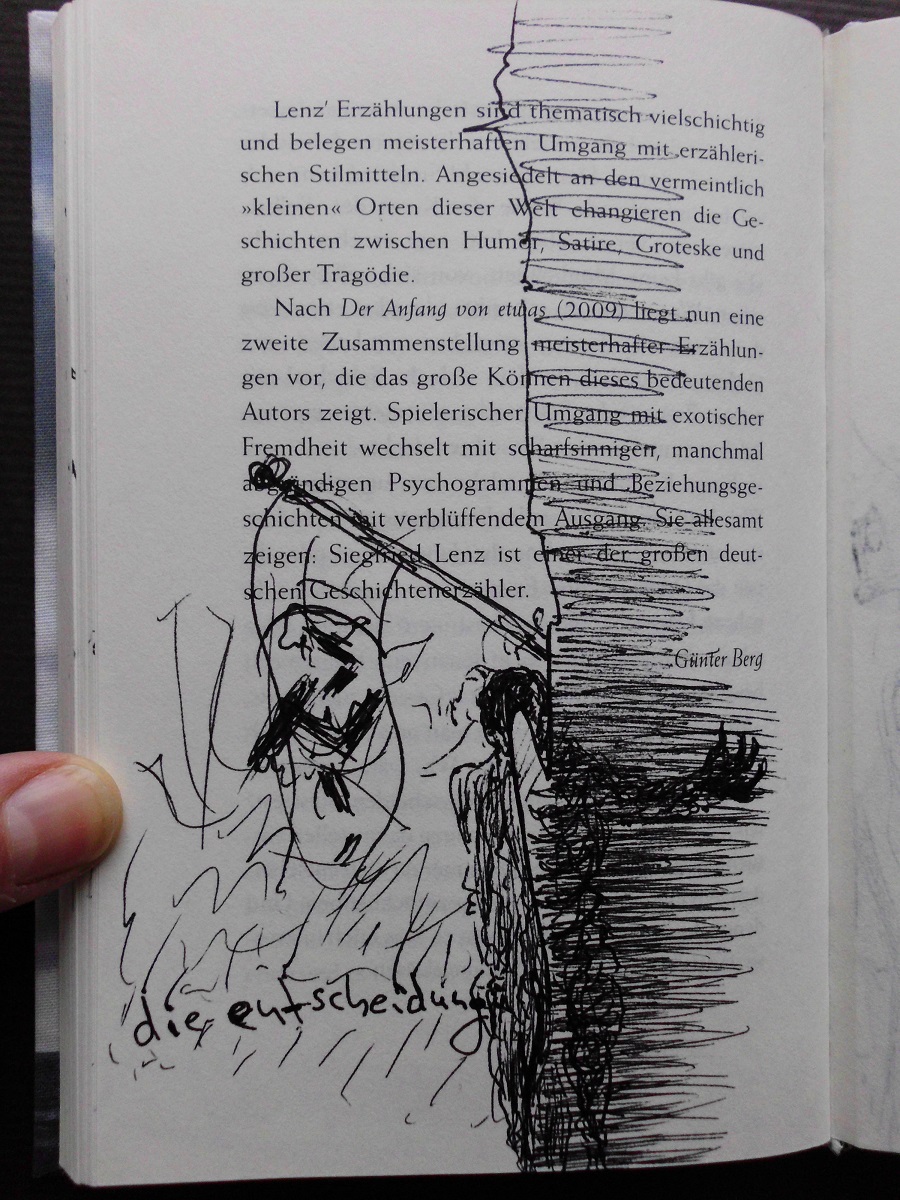 Lenz’ Erzählungen sind thematisch vielschichtig
und belegen meisterhaften Umgang mit erzähleri-
schen Stilmitteln. Angesiedelt an den vermeintlich
»kleinen« Orten dieser Welt changieren die Ge-
schichten zwischen Humor, Satire, Groteske und
großer Tragödie.
Nach Der Anfang von etwas (2009) liegt nun eine
zweite Zusammenstellung meisterhafter Erzählun-
gen vor, die das große Können dieses bedeutenden
Autors zeigt. Spielerischer Umgang mit exotischer
Fremdheit wechselt mit scharfsinnigen, manchmal
abgründigen Psychogrammen und Beziehungsge-
schichten mit verblüffendem Ausgang. Sie allesamt
zeigen: Siegfried Lenz ist einer der großen deut-
schen Geschichtenerzähler.
Günter Berg
die entscheidung